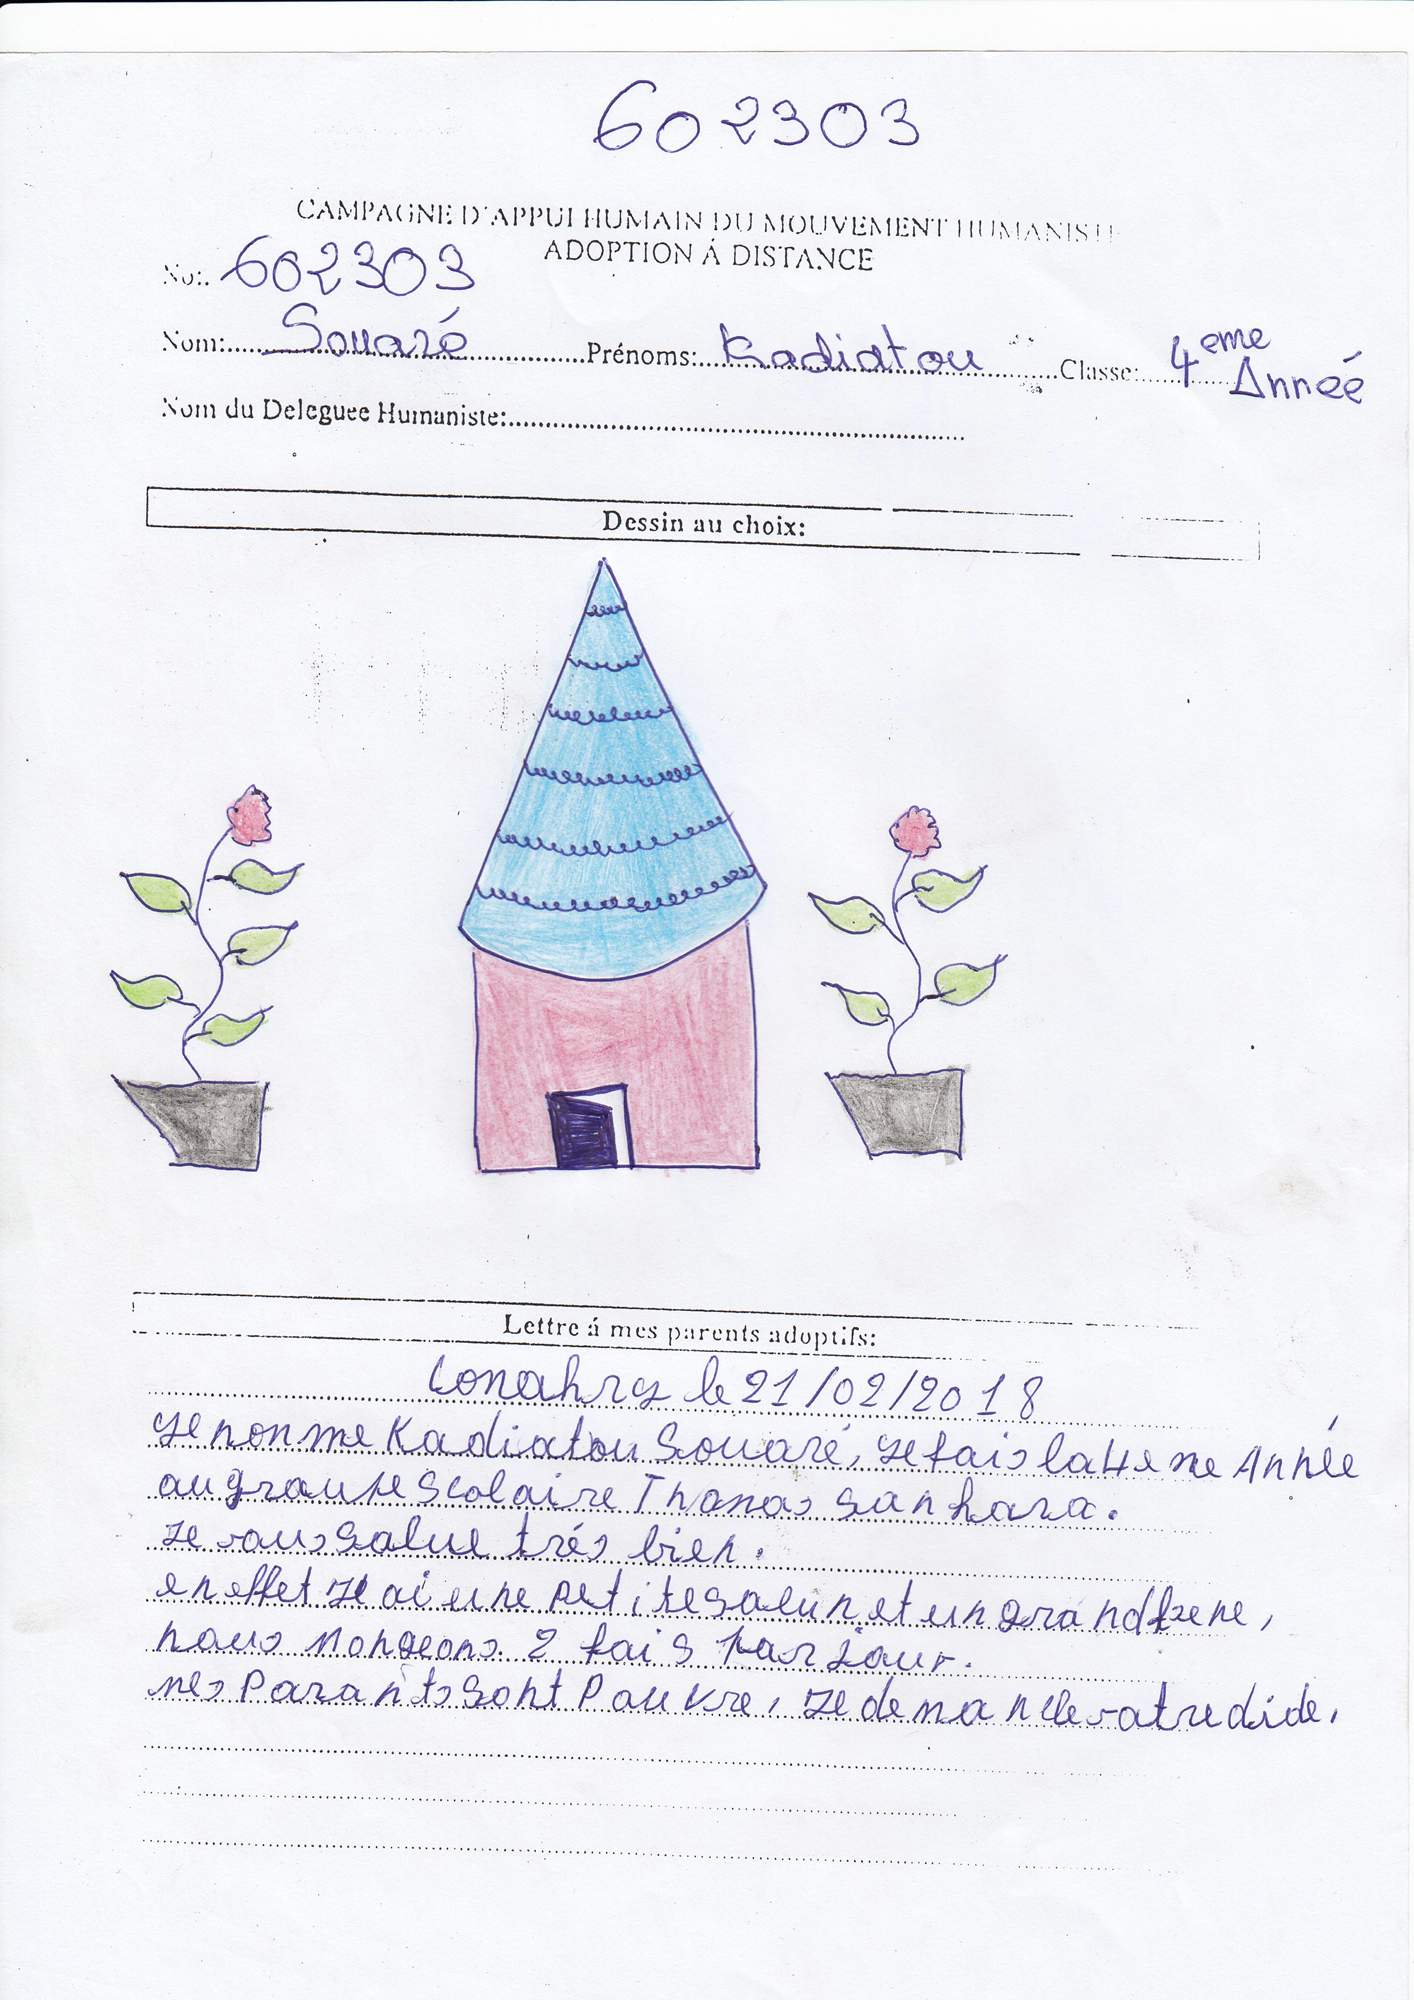 602303
CAMPAGNE D'APPUI HUMAIN DU MOUVEMENT HUMANISTE
ADOPTION Á DISTANCE
No:. 602303
Nom: Souaré Prénoms: Kadiatou Classe: 4eme Anneé
Nom du Deleguee Humaniste:
Dessin au choix:
Lettre á mes parents adoptifs:
Conakry le 21/02/2018
Je nonme Kadiatou Souaré, Je fais la 4eme Année
au groupe Scolaire Thomas Sankara.
Je vous Salue trés bien.
en effet Je ai une petite et un grand frene,
nous mongeons 2 fais par Jour.
mes Parants Sont Pauvre, Je demande votre dide.